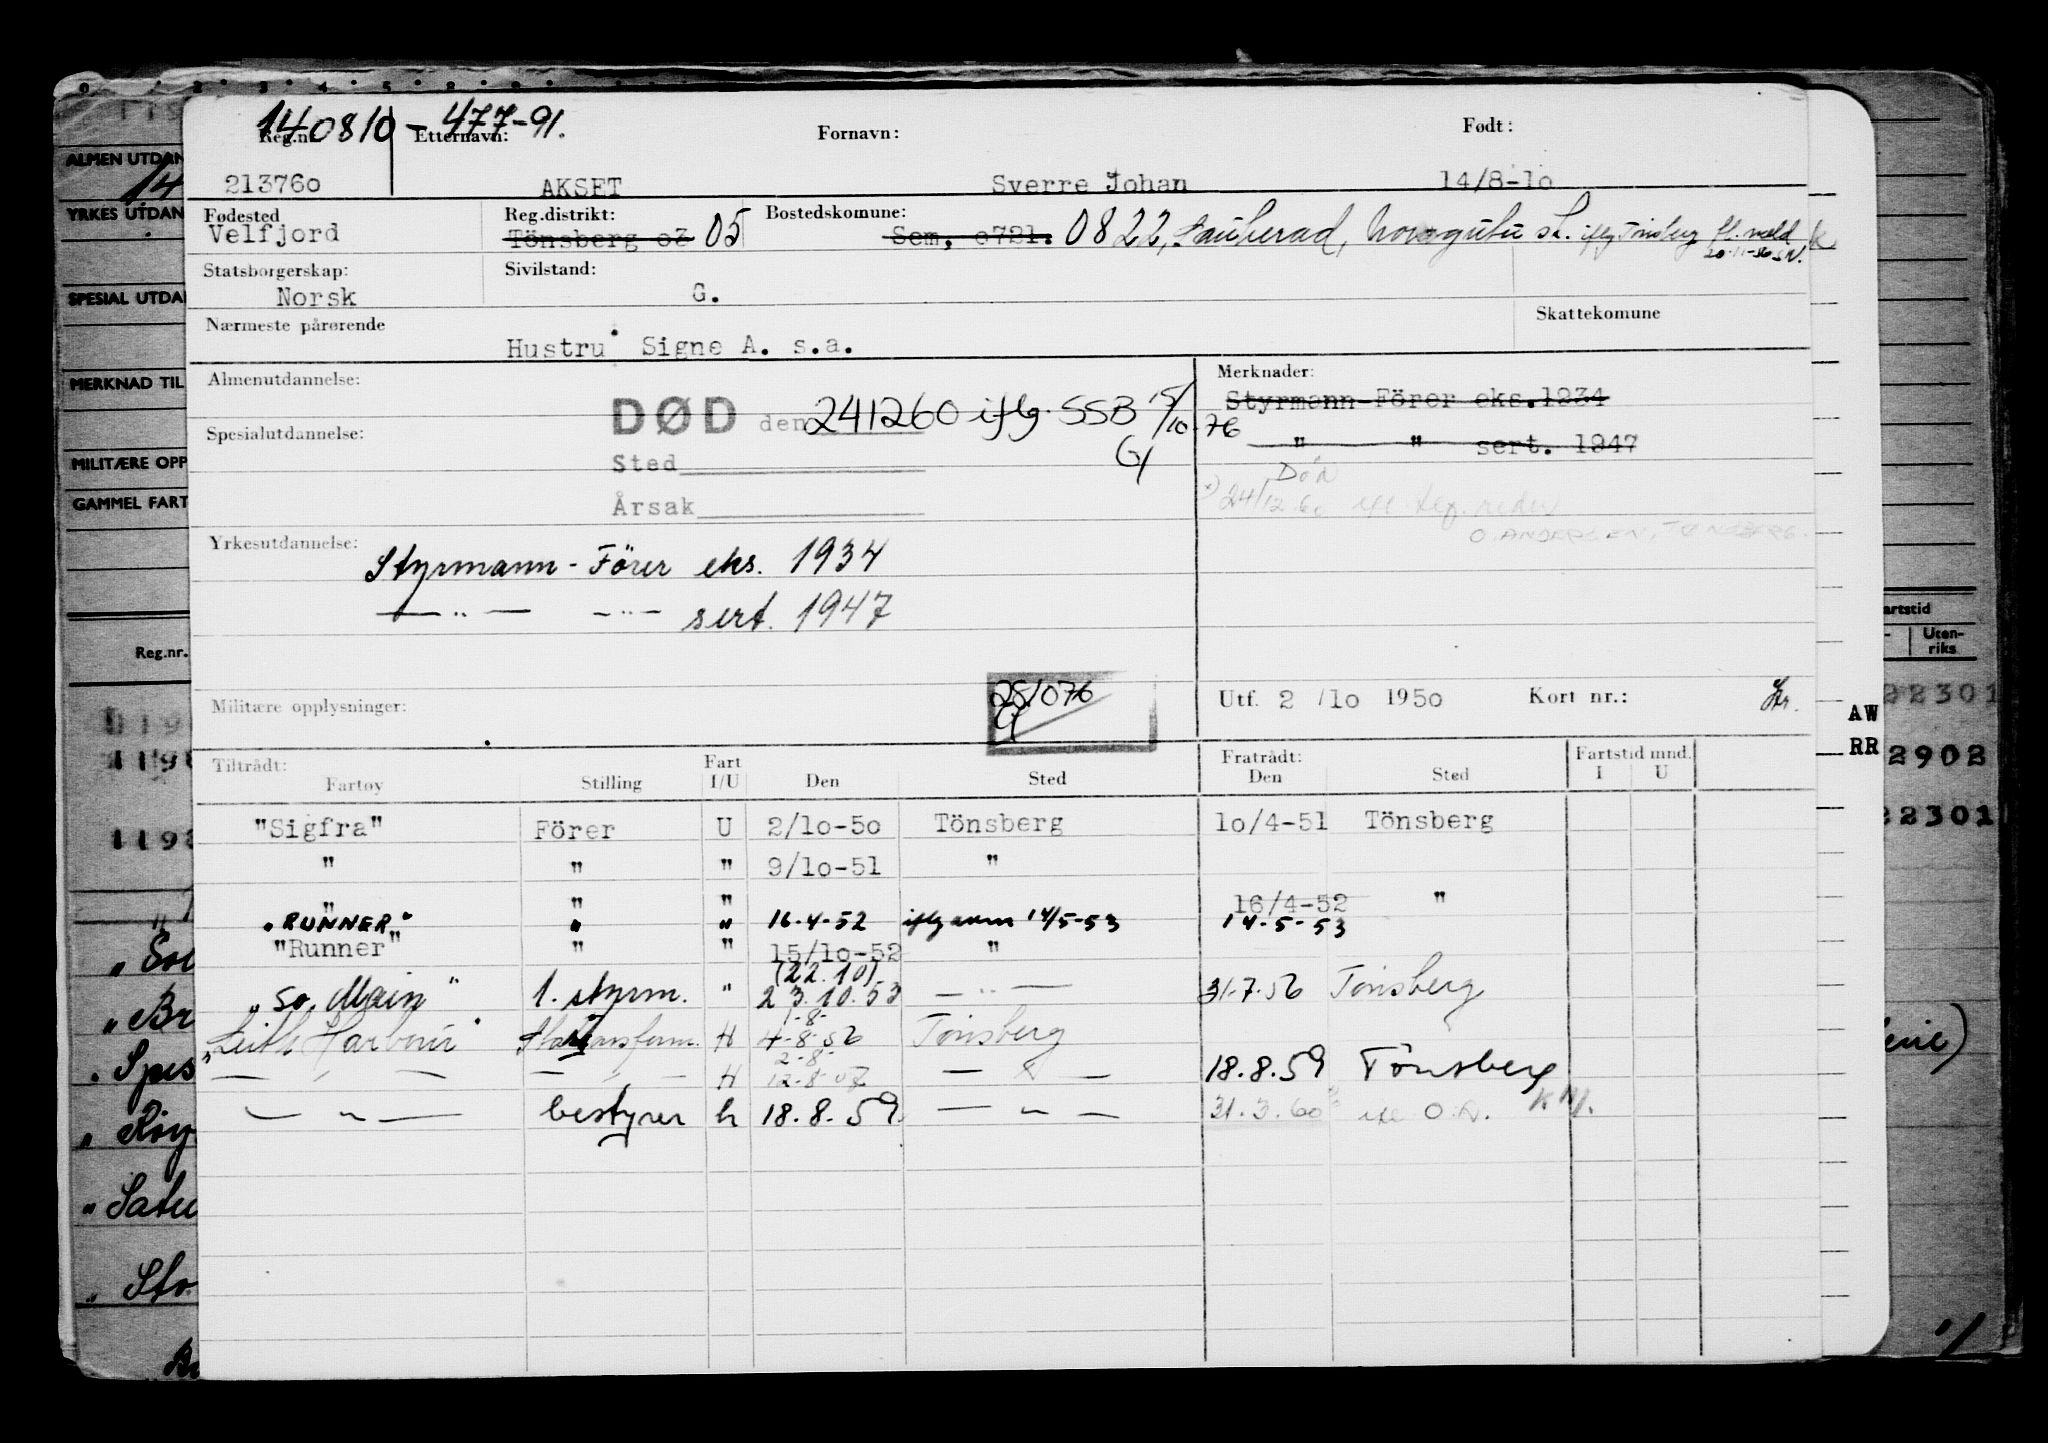 140810-477-91.
Reg.nr. Etternavn: Fornavn: Født:
213760 AKSET Sverre Johan 14/8-10
Fødested Reg.distrikt: Bostedskomune:
Velfjord Tönsberg 03 05 Sem, 0721. 0822, Sauherad, st. iflg Tönsberg fl. meld
20-11-56 SN.
Statsborgerskap: Sivilstand:
Norsk G.
Nærmeste pårørende Skattekomune
Hustru Signe A. s.a.
Almenutdannelse: Merknader:
Styrmann-Förer eks.1934
DØD den 241260 iflg. SSB 15/10-76
G
Spesialutdannelse: " " sert. 1947
Sted
Død
x) 24/12.60
O. ANDERSEN, TØNSBERG.
Årsak
Yrkesutdannelse:
Styrmann - Förer eks. 1934
— " — - " - sert. 1947
281076
Militære opplysninger: Utf. 2 /10 1950 Kort nr.:
Tiltrådt: Fart Fratrådt: Fartstid mnd.
Fartøy Stilling I/U Den Sted Den Sted I U
"Sigfra" Förer U 2/10-50 Tönsberg 10/4-51 Tönsberg
" " " 9/10-51 "
" " " 16/4-52 "
"RUNNER" " " 16-4-52 iflg 14/5-53 14-5-53
"Runner" " " 15/10-52 "
(22.10)
"So. Main" 1. styrm. " 23.10.53 — " — 31-7-56 Tönsberg
1-8-
"Leith Harbour" H 4-8-56 Tönsberg
2-8-
— " — — " — H 12-8-57 — " — 18.8.59 Tönsberg
— " — bestyrer h 18.8.59. — " — 31.3.60 O.A.
ALMEN UTDAN
14
YRKES UTDAN
SPESIAL UTDAN
MERKNAD TIL
MILITÆRE OPP
GAMMEL FART
Reg.nr.
artstid
Uten-
riks
22301
AW
RR
2902
22301